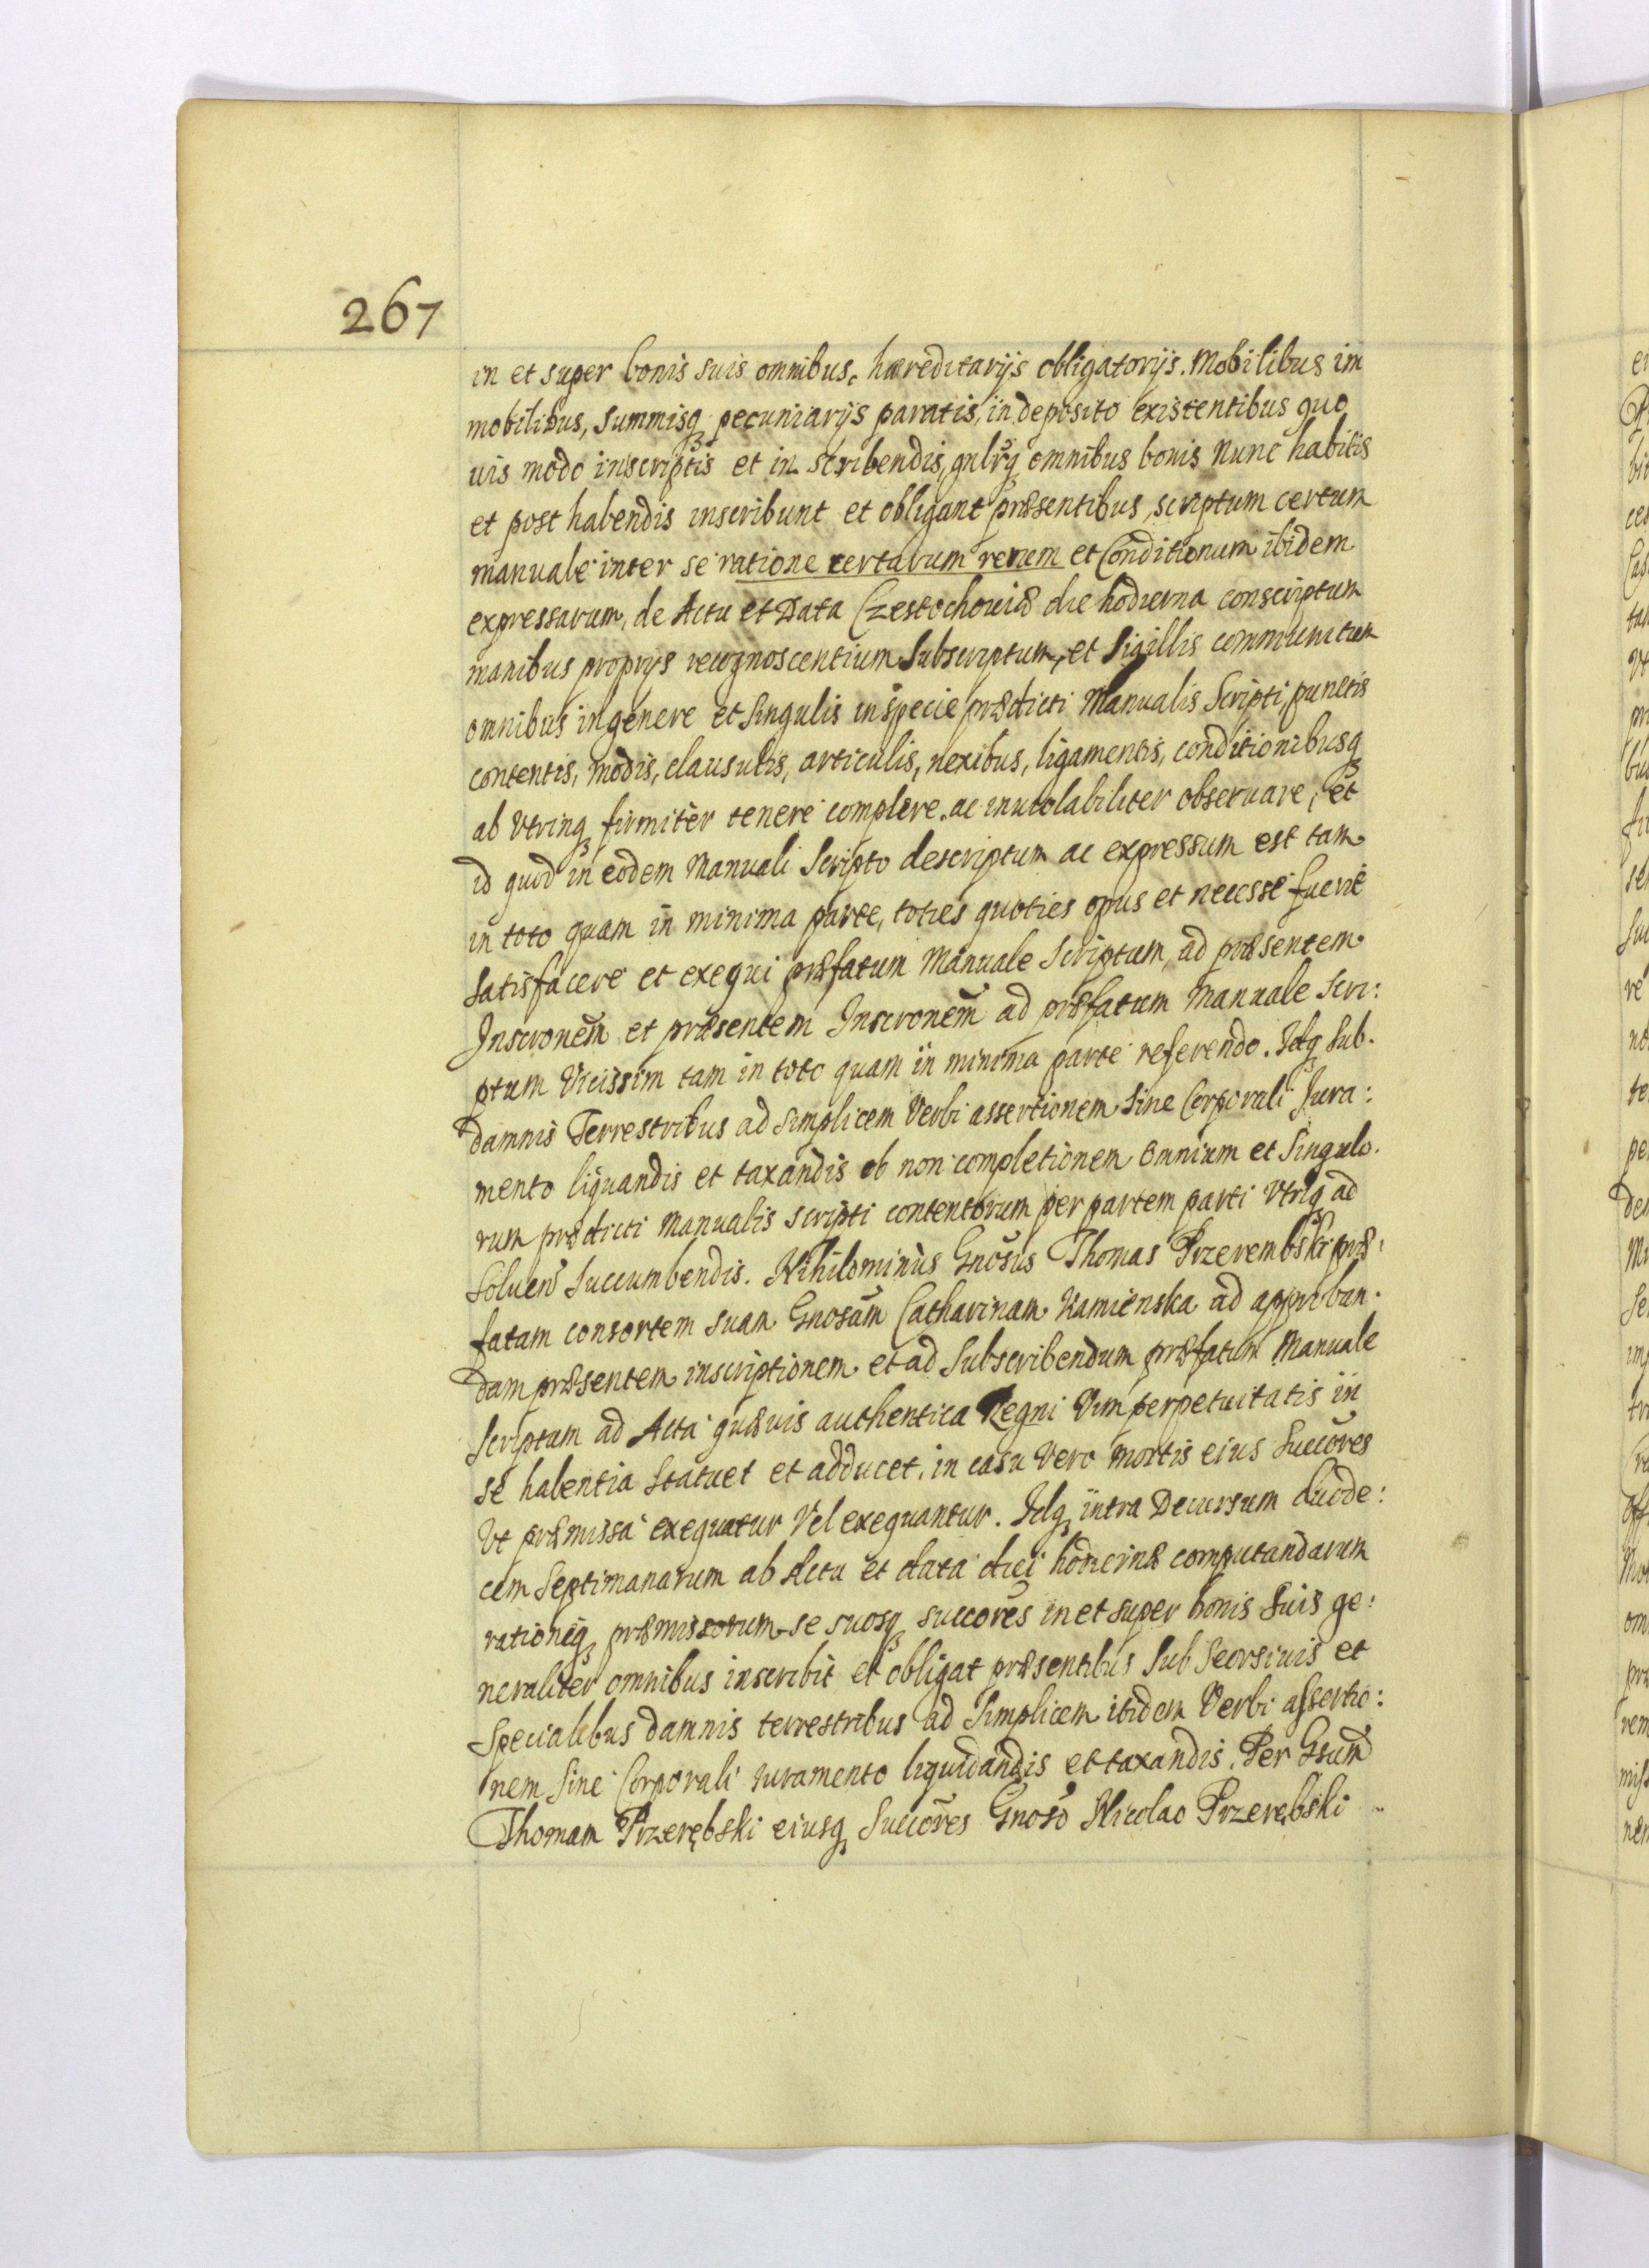 267
in et super bonis suis omnibus, hæreditarijs obligatorijs. Mobilibus im
mobilibus, summisq pecuniarijs paratis, in deposito existentibus quo
uis modo inscriptis et in scribendis, gnlrq omnibus bonis nunc habitis
et post habendis inscribunt et obligant præsentibus, scriptum certum
manuale inter se ratione certarum rerum et Conditionum ibidem
expressarum, de Actu et Data Czestochouiæ die hodierna conscriptum
manibus proprys recognoscentium subscriptum, et sigillis communitum
omnibus in genere et singulis in specie prædicti Manualis Scripti, punctis
contentis, modis, clausulis, articulis, nexibus, ligamentis, conditionibusq
ab Vtrinq firmiter tenere complere. ac inuiolabiliter obseruare, et
id quod in eodem Manuali Scripto descriptum ac expressum est tam
in toto quam in minima parte, toties quoties opus et necesse fuerit
satisfacere et exequi præfatum Manuale Scriptum, ad præsentem
Inscronem et præsentem Inscronem ad præfatum Manuale Scri:
ptum Vicissim tam in toto quam in minima parte referendo. Idq sub.
damnis Terrestribus ad simplicem Verbi assertionem sine Corporali Jura:
mento liquandis et taxandis ob non completionem omnium et singulo.
rum prædicti Manualis scripti contentorum per partem parti Vtriq ad
soluen succumbendis. Nihilominùs Gnosus Thomas Przerembski præ:
fatam consortem suam Gnosam Catharinam Kamienska ad approban.
dam præsentem inscriptionem et ad subscribendum præfatum Manuale
Scriptum ad Acta quæuis authentica Regni Vim perpetuitatis in
se habentia Statuet et adducet, in casu Vero mortis eius Succores
Vt præmissa exequatur Vel exequantur. Idq intra Decursum duode:
cem Septimanarum ab Actu et data diei hodiernæ computandarum
rationeq præmissorum se suosq succores in et super bonis suis ge:
neraliter omnibus inscribit et obligat præsentibus sub seorsiuis et
Specialibus damnis terrestribus ad simplicem itidem Verbi assertio:
nem sine Corporali iuramento liquidandis et taxandis. Per Gsum
Thomam Przerębski eiusq Succores Gnoso Nicolao Przerębski